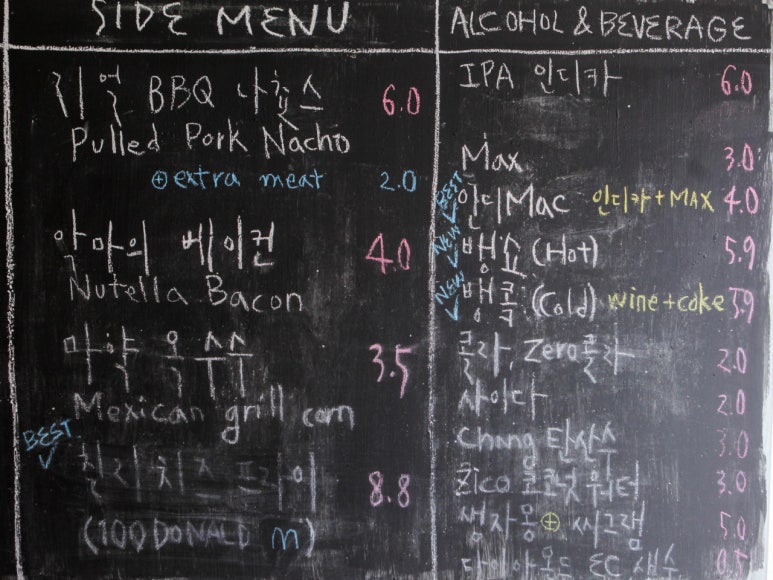 SIDE MENU
리얼 BBQ 나쵸스 6.0
Pulled Pork Nacho
⊕extra meat 2.0
악마의 베이컨 4.0
Nutella Bacon
마약 옥수수 3.5
Mexican grill corn
BEST
칠리치즈프라이 8.8
(100DONALD m)
ALCOHOL & BEVERAGE
IPA 인디카 6.0
Max 3.0
BEST 인디Mac 인디카+MAX 4.0
NEW 뱅쇼 (Hot) 5.9
NEW 뱅콕 (Cold) wine+coke 3.9
콜라, Zero콜라 2.0
사이다 2.0
Chang 탄산수 3.0
Zico 코코넛워터 3.0
생자몽⊕씨그램 5.0
다이아몬드 EC 생수 0.5